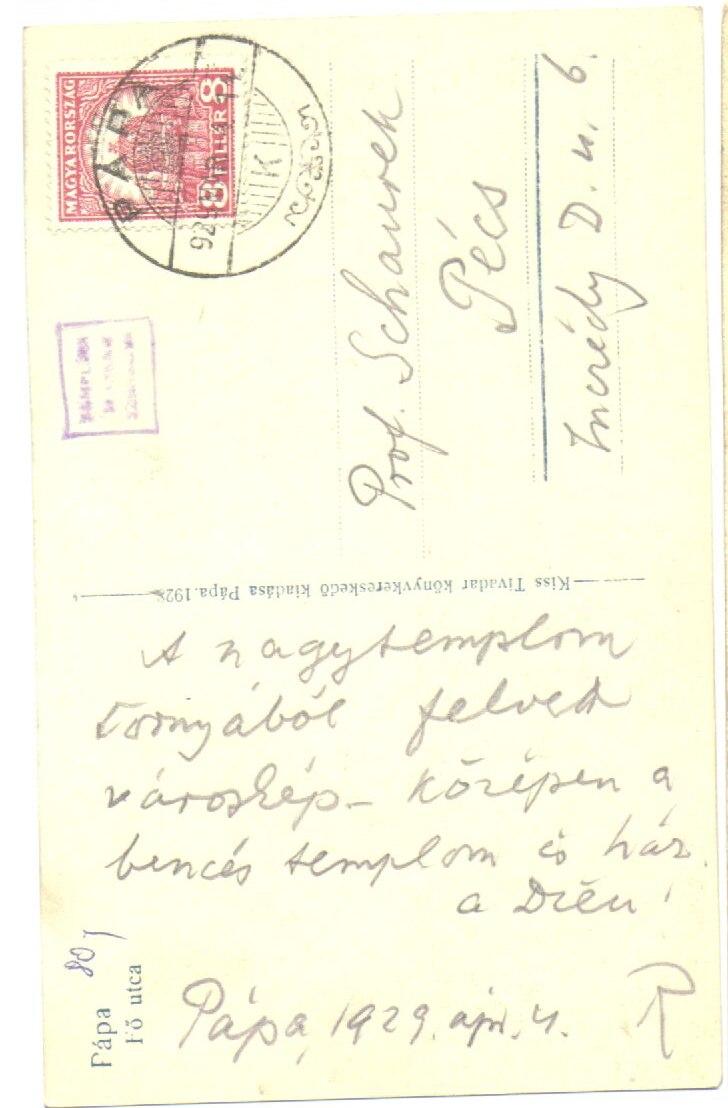 MAGYARORSZÁG
8 FILLÉR 8
PÁPA
K
Prof. Schaurek
Pécs
Inczédy D. u. 6.
Kiss Tivadar könyvkereskedő kiadása Pápa.1928
A nagytemplom
tornyából felvett
városkép – középen a
bencés templom és ház.
Pápa, 1929. ápr. 4.
R
Pápa
Fő utca